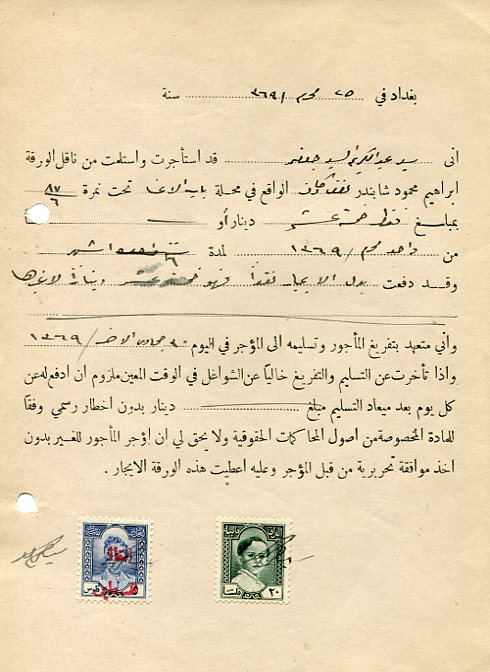 بغداد في ٢٥ محرم ١٣٦٩ سنة
اني سيد عبدالكريم السيد جعفر قد استأجرت واستلمت من ناقل الورقة
ابراهيم محمود شابندر الواقع في محلة باب الاغا تحت نمرة ٨٧/٦
بمبلغ فقط خمسة عشر دينار أو
من واحد محرم / ١٣٦٩ لمدة ستة اشهر
وقد دفعت بدل الايجار نقداً فهو خمسة عشر ديناراً لاغيرها
وأني متعهد بتفريغ المأجور وتسليمه الى المؤجر في اليوم جمادى الاخر / ١٣٦٩
واذا تأخرت عن التسليم والتفريغ خالياً عن الشواغل في الوقت المعين ملزوم ان ادفع له عن
كل يوم بعد ميعاد التسليم مبلغ دينار بدون اخطار رسمي وفقاً
للمادة المخصوصة من اصول المحاكمات الحقوقية ولا يحق لي ان اؤجر المأجور للغير بدون
اخذ موافقة تحريرية من قبل المؤجر وعليه اعطيت هذه الورقة الايجار .
انقاذ
فلسطين
٥ فلوس
٢٠ فلسا